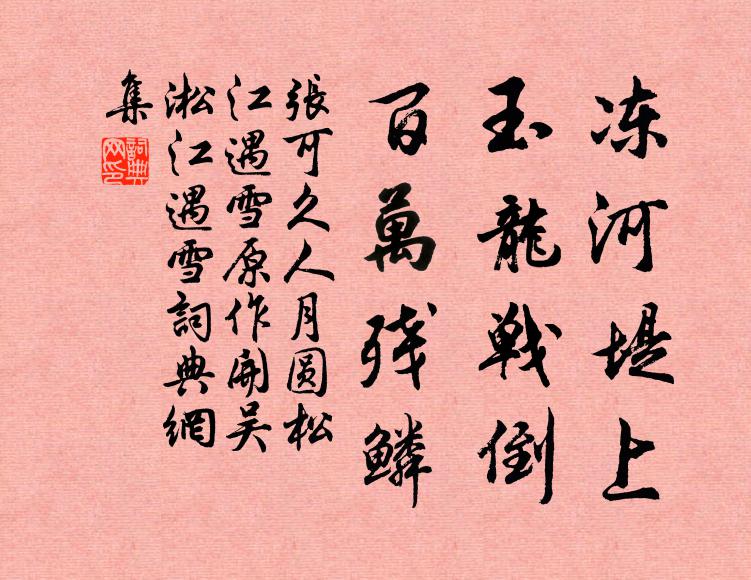 冻河堤上
玉龍戰倒
百萬残鱗
張可久人月圓松
江遇雪原作開吴
淞江遇雪詞典網
集
詞典
网印